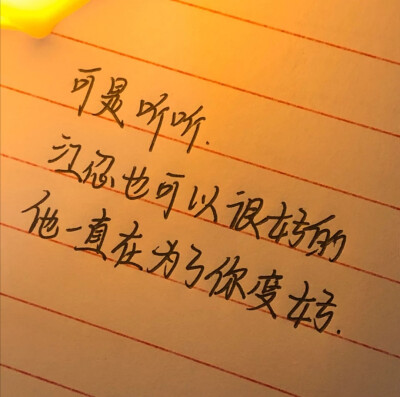 可是听听.
江忽也可以很好的
他一直在为了你变好.